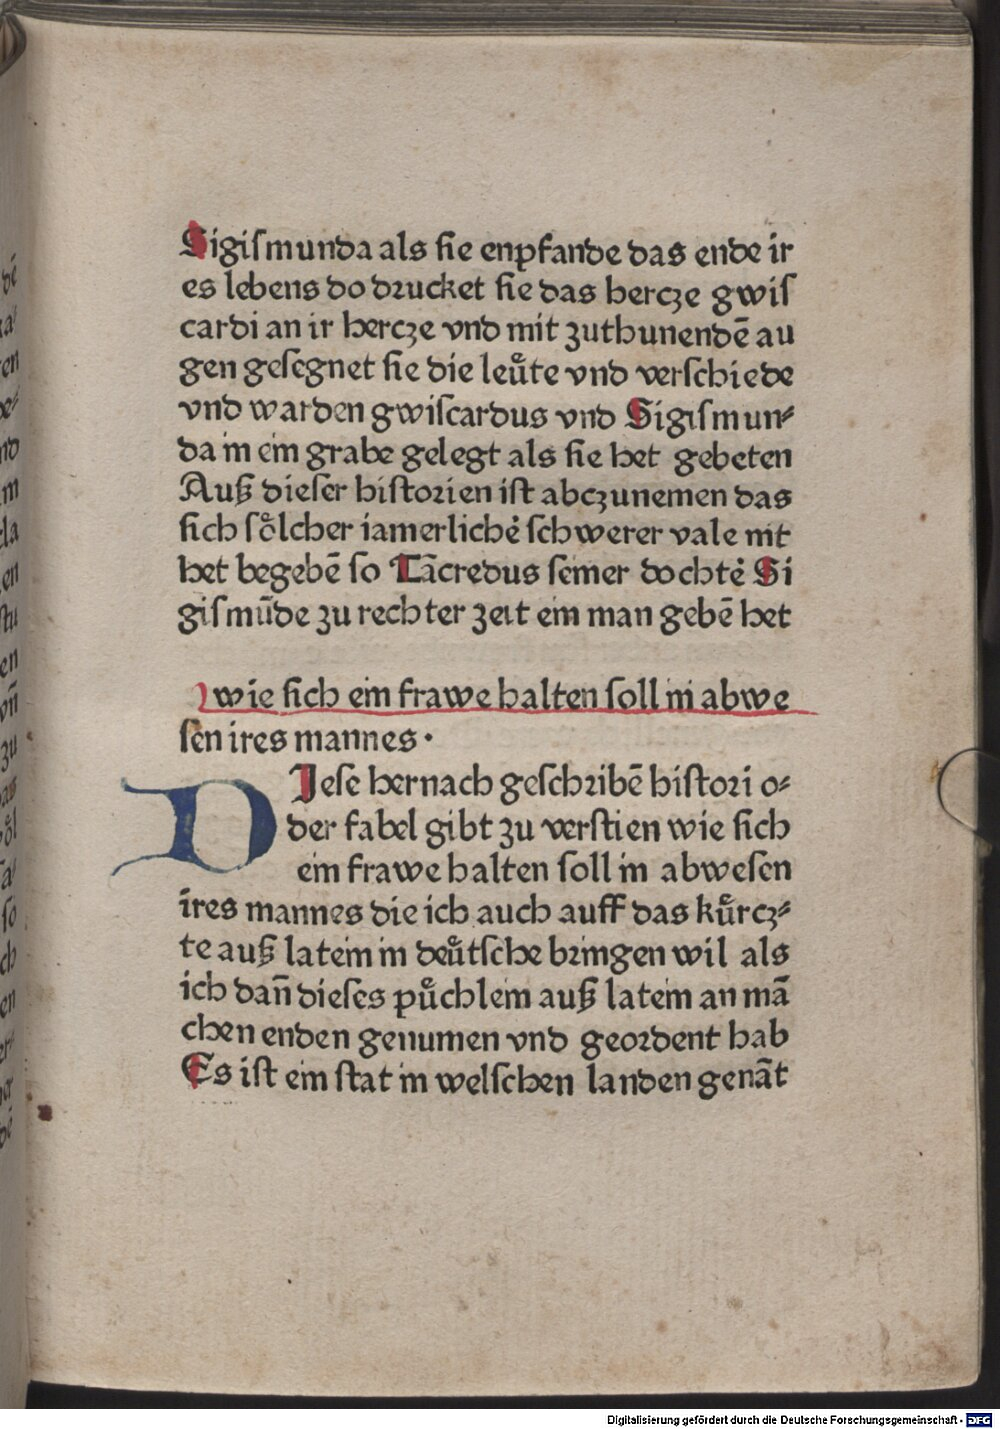 Sigiſmunda als ſie enpfande das ende ir
es lebens do drucket ſie das hercze gwiſ
cardi an ir hercze vnd mit zuthunendē au
gen geſegnet ſie die leuͤte vnd verſchiede
vnd warden gwiſcardus vnd Sigiſmun⸗
da in ein grabe gelegt als ſie het gebeten
Auß dieſer hiſtorien iſt abczunemen das
ſich ſoͤlcher iamerlichē ſchwerer vale nit
het begebē ſo Tācredus ſeiner dochtē Si
giſmūde zu rechter zeit ein man gebē het
wie ſich ein frawe halten ſoll in abwe
ſen ires mannes ·
DIeſe hernach geſchribē hiſtori o⸗
der fabel gibt zu verſtien wie ſich
ein frawe halten ſoll in abweſen
ires mannes die ich auch auff das kuͤrcz⸗
te auß latein in deuͤtſche bringen wil als
ich dañ dieſes puͤchlein auß latein an mā
chen enden genumen vnd geordent hab
Es iſt ein ſtat in welſchen landen genāt
Digitalisierung gefördert durch die Deutsche Forschungsgemeinschaft - DFG